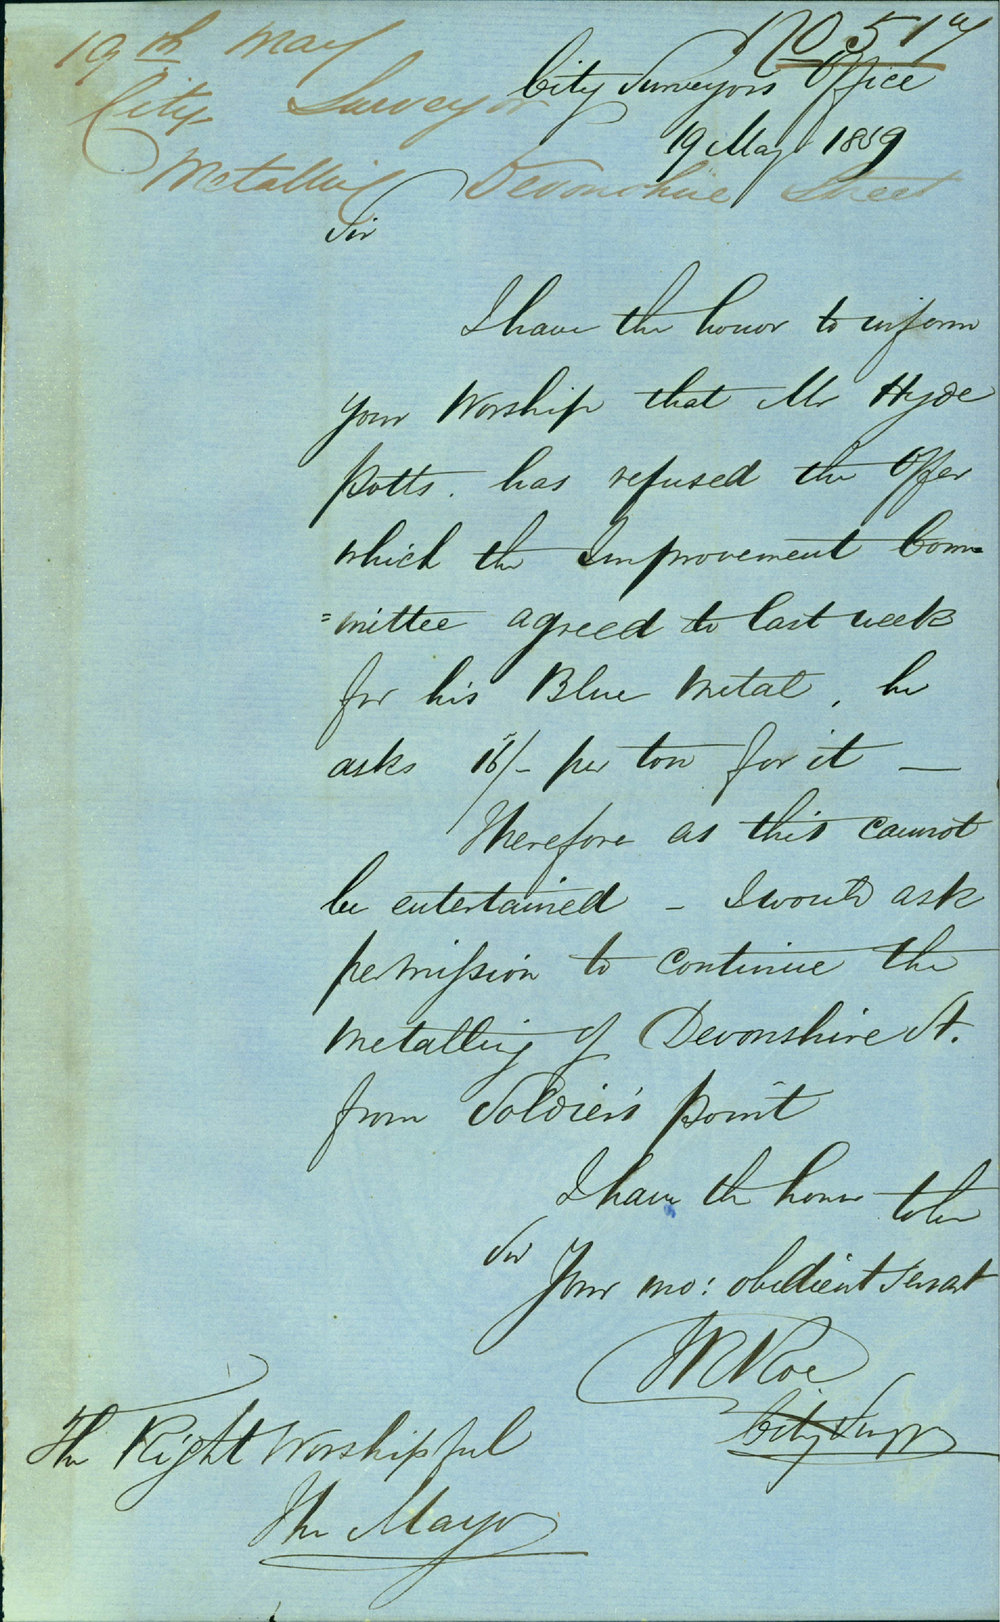 No 517
19th May
City Surveyor
Metalling Devonshire Street
City Surveyors Office
19 May 1859
Sir
I have the honor to inform
your Worship that Mr Hyde
Potts. has refused the Offer
which the Improvement Com=
=mittee agreed to last week
for his Blue Metal, he
asks 16/- per ton for it —
Therefore as this cannot
be entertained – I would ask
permission to continue the
Metalling of Devonshire St.
from Soldier's Point
I have the honor to be
Sir
Your mo: obedient Servant
Roe
City Survr
The Right Worshipful
The Mayor